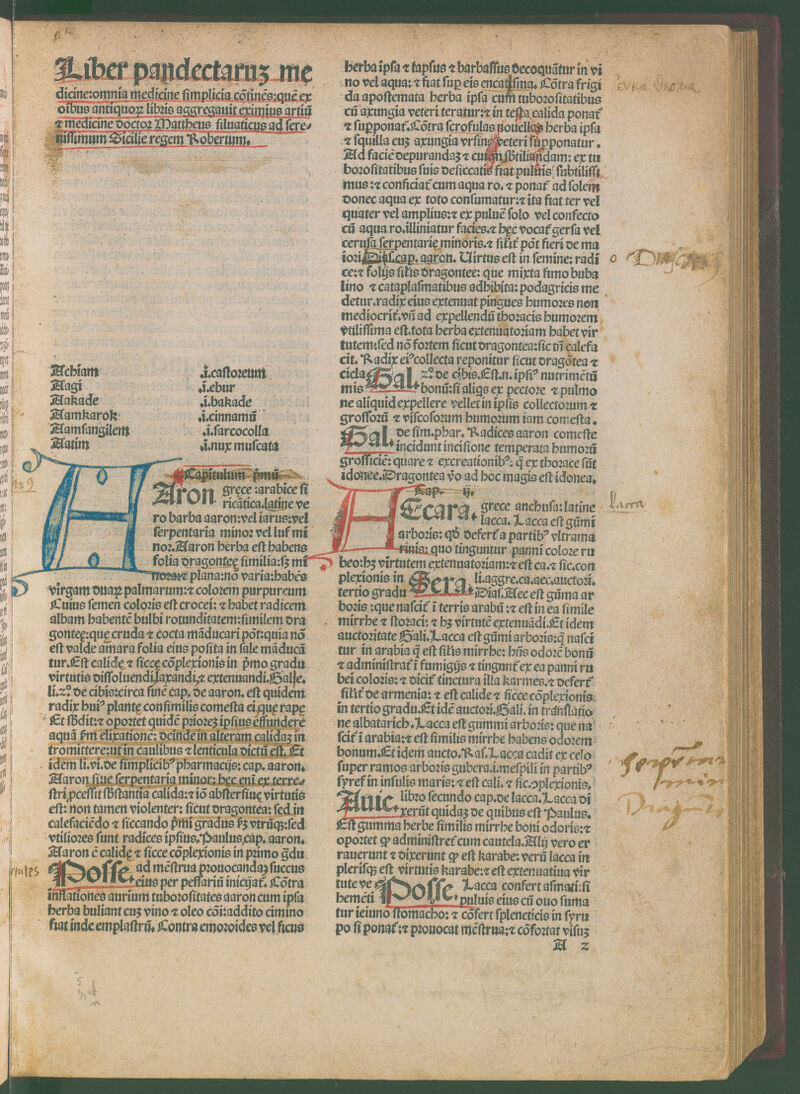 Liber pandectaruꝫ me
dicine:omnia medicine simplicia cōtinēs:quē ex
oībus antiquoꝝ libris aggregauit eximius artiū
⁊ medicine doctor Mattheus siluaticus ad sere-
nissimum Sicilie regem Robertum.
Achiam .i.castoreum
Aagi .i.ebur
Aakade .i.bakade
Aamkarok .i.cinnamū
Aamfangilem .i.sarcocolla
Aatim .i.nux muscata
Capitulum pmū
AAron grece:arabice si
ricatica.latine ve
ro barba aaron:vel iarus:vel
serpentaria minor vel luf mi
nor.Aaron herba est habens
folia dragontee similia:sꝫ mi
nora⁊ plana:nō varia:habēs
virgam duaꝝ palmarum:⁊ colorem purpureum
Cuius semen coloris est crocei: ⁊ habet radicem
albam habentē bulbi rotunditatem:similem dra
gontee:que cruda ⁊ cocta māducari pōt:quia nō
est valde amara folia eius posita in sale māducā
tur.Est calide ⁊ sicce cōplexionis in pmo gradu
virtutis dissoluendi,laxandi,⁊ extenuandi.Galie.
li.2°.de cibis:circa finē cap. de aaron. est quidem
radix huiꝰ plante consimilis comesta ei que rape
Et sbdit:⁊ oportet quidē priorez ipsius effundere
aquā pm elixationē: deinde in alteram calidaꝫ in
tromittere:ut in caulibus ⁊ lenticula dictū est. Et
idem li.vi.de simplicibꝰ pharmacijs: cap. aaron.
Aaron siue serpentaria minor: hec eni ex terre-
stri pcessit sbstantia calida:⁊ iō abstersiue virtutis
est: non tamen violenter: sicut dragontea: sed in
calefaciēdo ⁊ siccando pmi gradus hꝫ vtrūqꝫ:sed
vtiliores sunt radices ipsius.Paulus,cap. aaron.
Aaron ē calide ⁊ sicce cōplexionis in primo gdu
Posse. ad mēstrua prouocandaꝫ succus
eius per pessariū inijciat. Cōtra
inflationes aurium tuborositates aaron cum ipsa
herba buliant cuꝫ vino ⁊ oleo cōi:addito cimino
fiat inde emplastrū. Contra emoroides vel ficus
herba ipsa ⁊ tapsus ⁊ barbassus decoquātur in vi
no vel aqua: ⁊ fiat sup eis encatisma. Cōtra frigi
da apostemata herba ipsa cum tuborositatibus
cū axungia veteri teratur:⁊ in testa calida ponat
⁊ supponat.Cōtra scrofulas nouellas herba ipsa
⁊ squilla cuꝫ axungia vrsina veteri supponatur.
Ad faciē depurandaꝫ ⁊ cutim sbtiliandam: ex tu
borositatibus suis desiccatis fiat puluis subtilissi
mus:⁊ conficiat cum aqua ro. ⁊ ponat ad solem
donec aqua ex toto consumatur:⁊ ita fiat ter vel
quater vel amplius:⁊ ex puluē solo vel confecto
cū aqua ro.illiniatur facies.⁊ hec vocat gersa vel
cerusa serpentarie minoris.⁊ silit pōt fieri de ma
iori.Dias.cap. aaron. Uirtus est in semine: radi
ce:⁊ folijs silis dragontee: que mixta fimo buba
lino ⁊ cataplasmatibus adhibita: podagricis me
detur.radix eius extenuat pingues humores non
mediocrit.vn ad expellendū thoracis humorem
vtilissima est.tota herba extenuatoriam habet vir
tutem:sed nō fortem sicut dragontea:sic tn calefa
cit. Radix eiꝰ collecta reponitur sicut dragōtea ⁊
cicla Gal. 2°.de cibis.Est.n. ipsiꝰ nutrimētū
mis bonū:si aliqs ex pectore ⁊ pulmo
ne aliquid expellere vellet in ipsis collectorum ⁊
grossorū ⁊ viscosorum humorum iam comesta.
Gal. de sim.phar. Radices aaron comeste
incidunt incisione temperata humorū
grossiciē: quare ⁊ excreationibꝰ: q̄ ex thorace sūt
idonee.Dragontea vo ad hoc magis est idonea.
Cap. ij.
AEcara. grece anchusa:latine
lacca. Lacca est gūmi
arboris: qd defert a partibꝰ vltrama
rinis: quo tinguntur panni colore ru
beo:hꝫ virtutem extenuatoriam:⁊ est ca.⁊ sic.con
plexionis in Sera. li.aggre.ca.aec.auctori.
tertio gradu Dias.Aec est gūma ar
boris :que nascit i terris arabū :⁊ est in ea simile
mirrhe ⁊ storaci: ⁊ hꝫ virtutē extenuādi.Et idem
auctoritate Hali.Lacca est gūmi arboris:q̄ nasci
tur in arabia q̄ est silis mirrhe: hns odorē bonū
⁊ administrat i fumigijs ⁊ tingunt ex ea panni ru
bei coloris: ⁊ dicit tinctura illa karmes.⁊ defert
silit de armenia: ⁊ est calide ⁊ sicce cōplexionis
in tertio gradu.Et idē auctori.Hali. in translatio
ne albatarich.Lacca est gummi arboris: que na
scit i arabia:⁊ est similis mirrhe habens odorem
bonum.Et idem aucto.Ras.Lacca cadit ex celo
super ramos arboris gubera.i.mespili in partibꝰ
syref in insulis maris: ⁊ est cali. ⁊ sic.ɔplexionis.
Auic. libro secundo cap.de lacca.Lacca di
xerūt quidaꝫ de quibus est Paulus.
Est gumma herbe similis mirrhe boni odoris:⁊
oportet ꝙ administret cum cautela.Alij vero er
rauerunt ⁊ dixerunt ꝙ est karabe: verū lacca in
plerisqꝫ est virtutis karabe:⁊ est extenuatiua vir
tute ve Posse. Lacca confert asmati:si
hemēti puluis eius cū ouo suma
tur ieiuno stomacho: ⁊ cōfert spleneticis in syru
po si ponat:⁊ prouocat mēstrua:⁊ cōfortat visuꝫ
A 2
Lacca